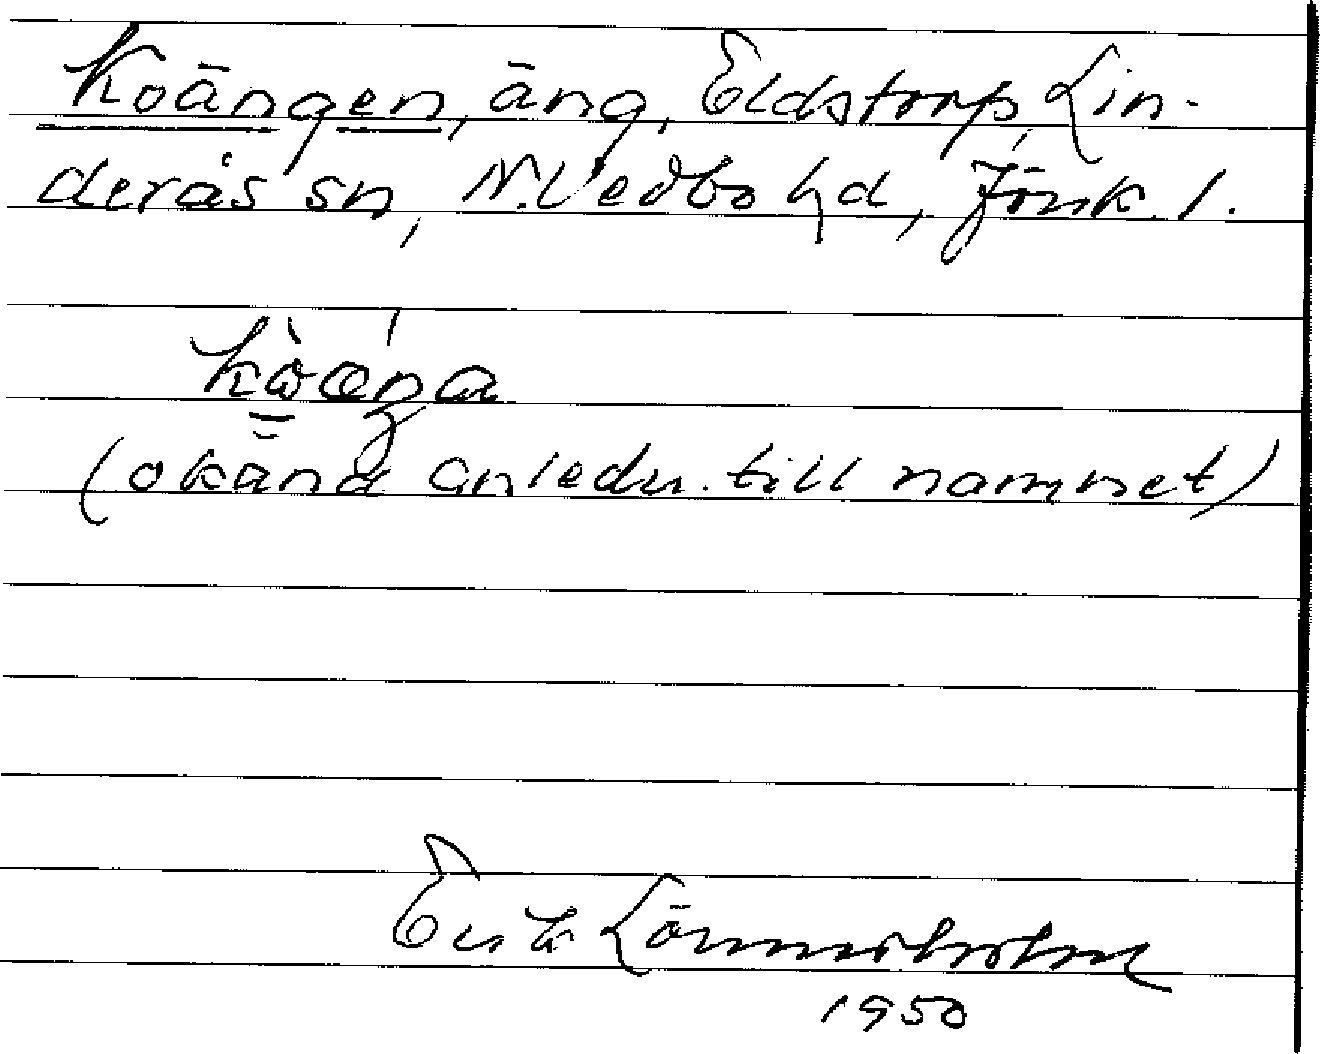 Koängen, äng, Eldstorp, Lin-
derås sn, N. Vedbo hd, Jönk. l.
(okänd anledn. till namnet)
Erik Lönnerholm
1950